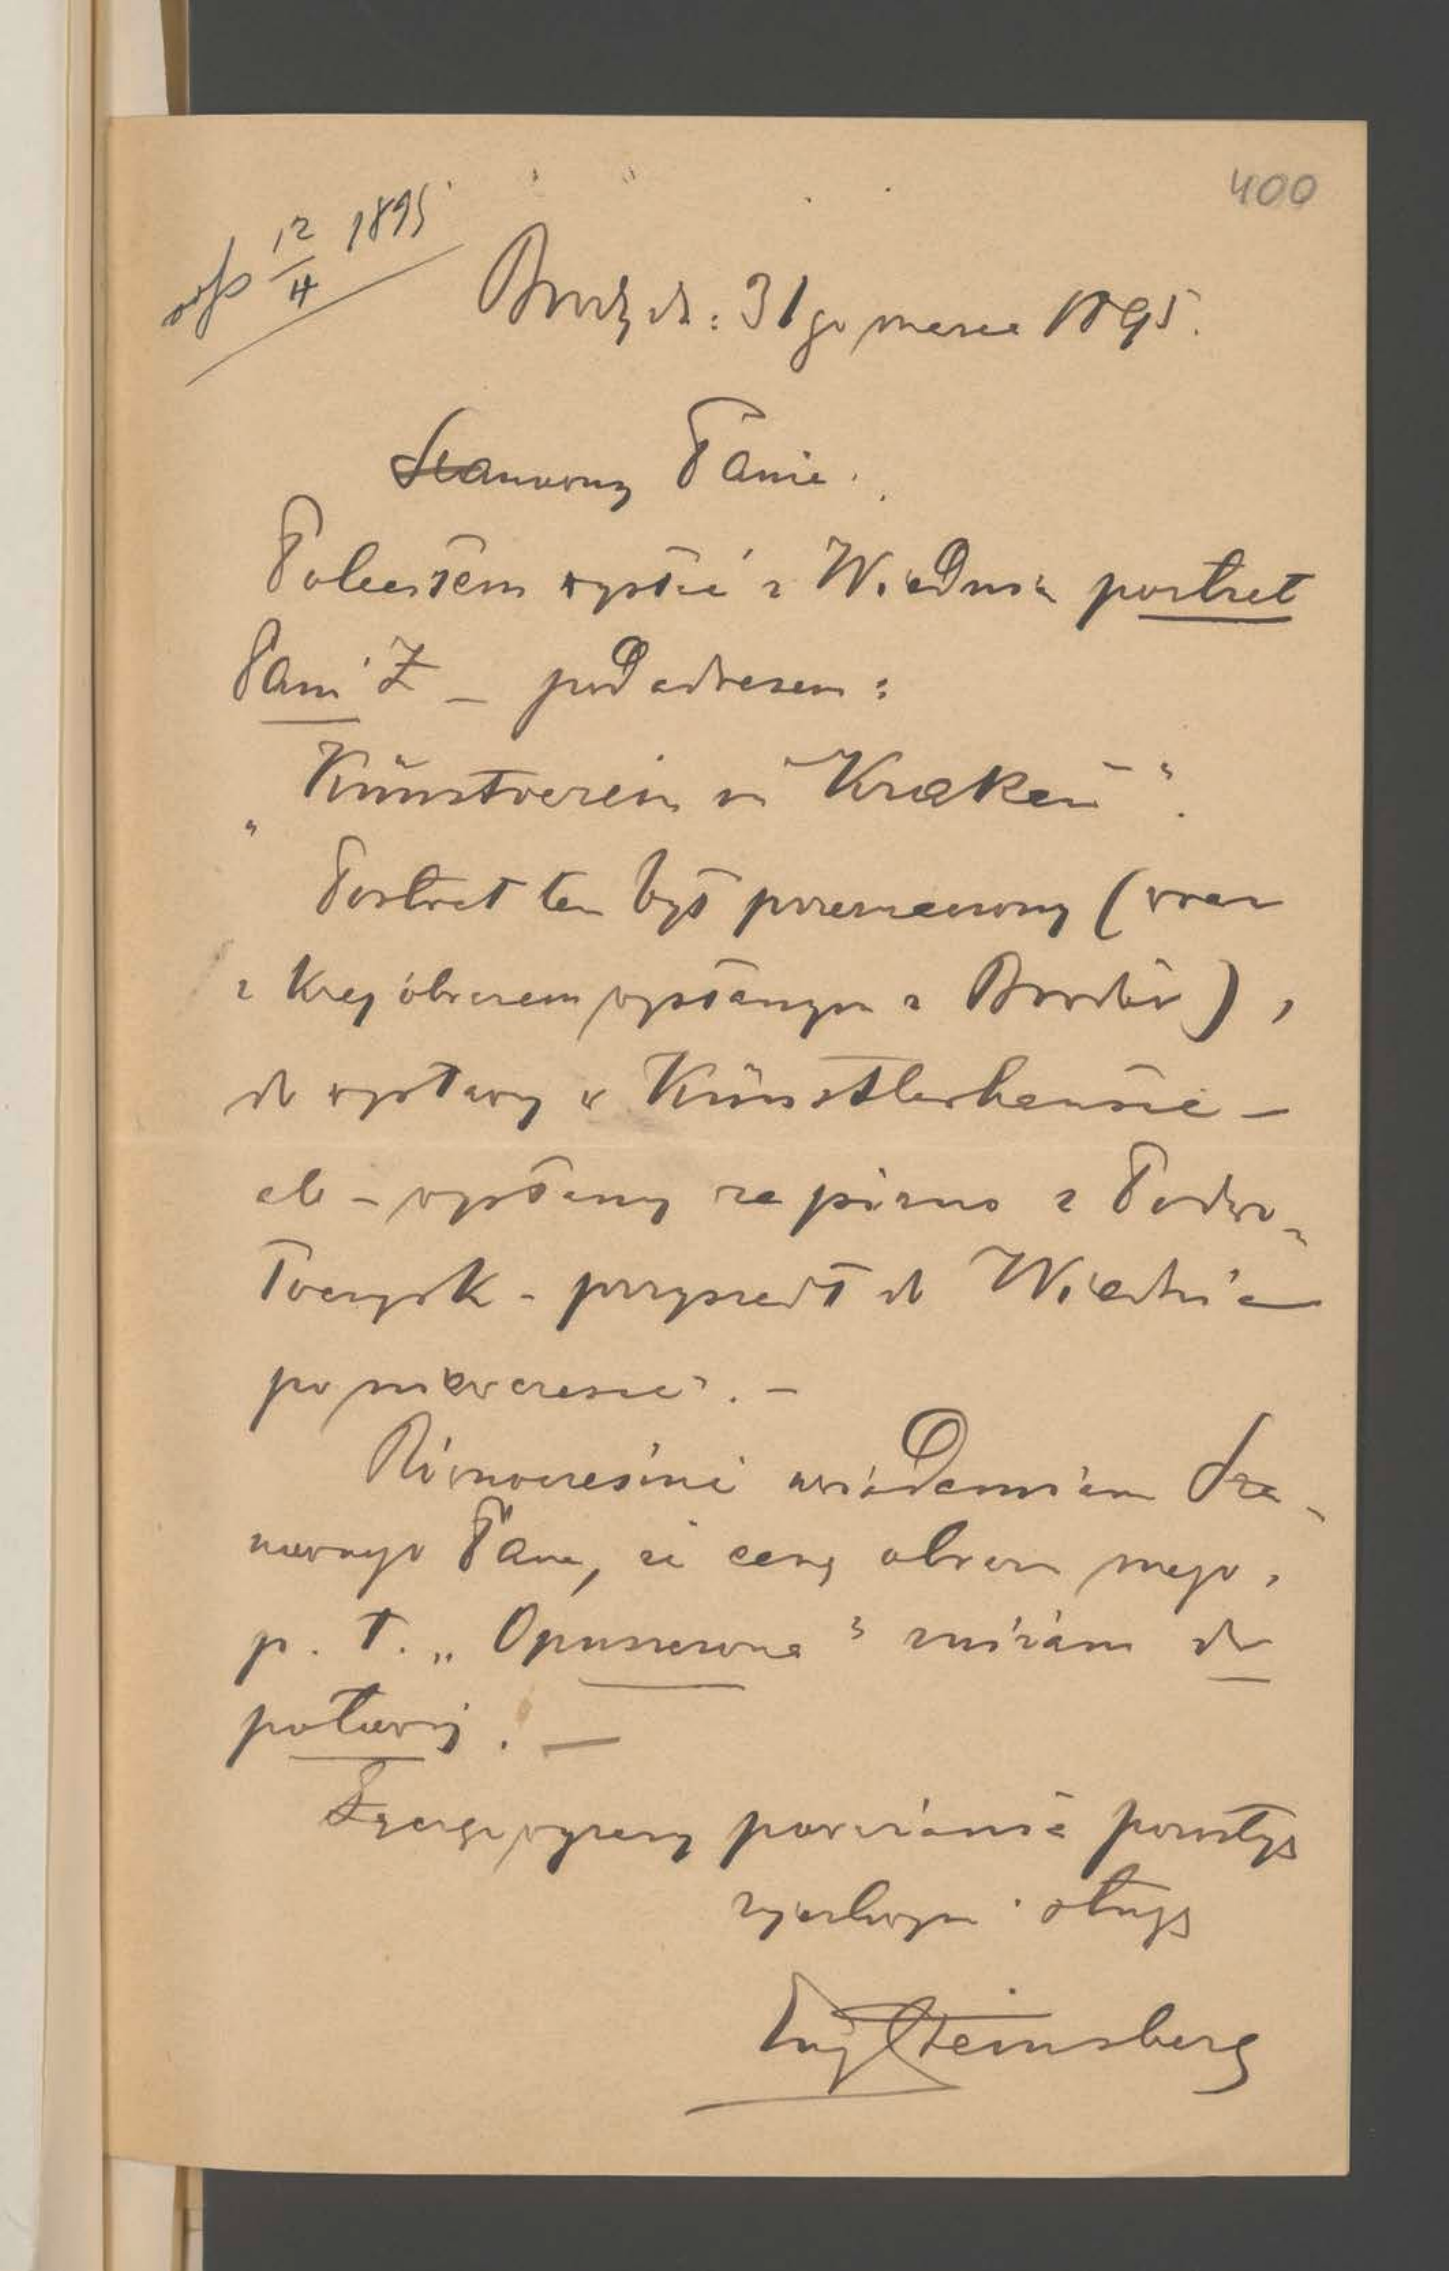 400
odp 12/4 1895
Brody d: 31go marca 1895.
Szanowny Panie.
Poleciłem wysłać z Wiednia portret
Pani Z – pod adresem:
"Künstverein in Krakau".
Portret ten był przeznaczony (wraz
z obrazem wysłanym z Brodów),
do wystawy w Künstlerhausie –
ale – wysłany za pózno z Podwo-
łoczysk – przyszedł do Wiednia
po niewczasie. –
Równocześnie uwiadamiam Sza-
nownego Pana, że cenę obrazu mego,
p. t. „Opuszczona" zniżam do
połowy. –
Łączę wyrazy poważania pozostaję
życzliwym sługą
Eug Steinsberg